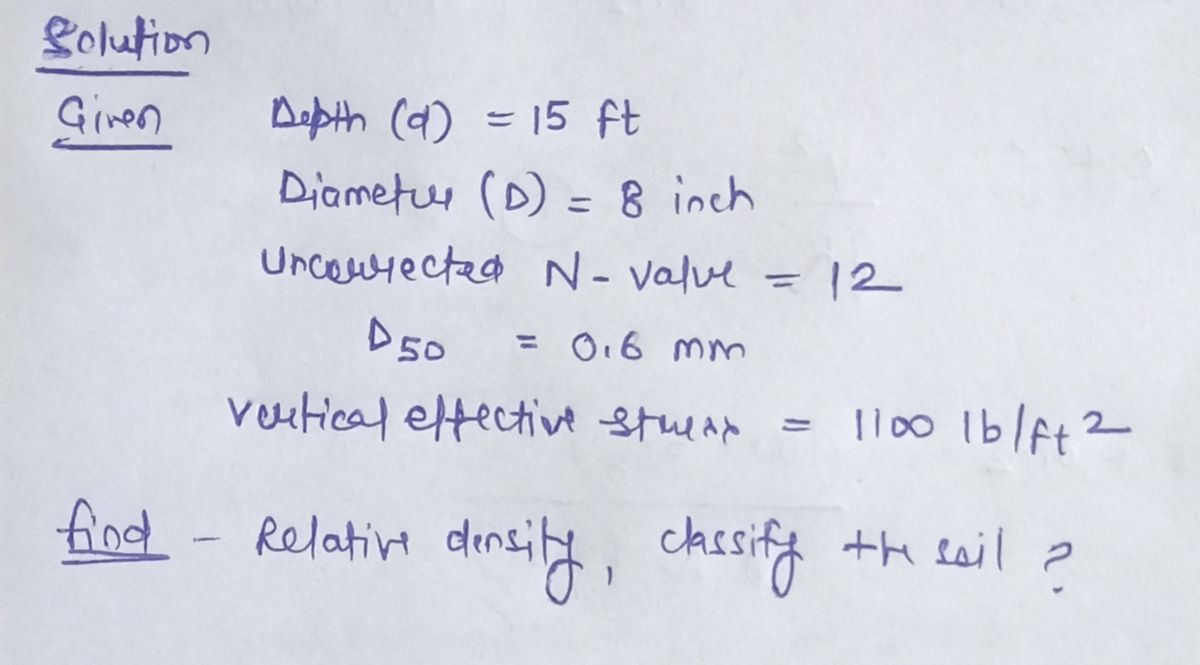 Solution
Given Depth (d) = 15 ft
Diameter (D) = 8 inch
Uncorrected N- value = 12
D50 = 0.6 mm
vertical effective stress = 1100 lb/ft2
find - Relative density, classify the soil ?